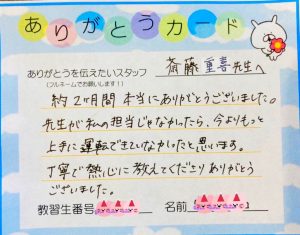 ありがとうカード
ありがとうを伝えたいスタッフ
(フルネームでお願いします!)
斎藤重喜先生へ
約2ヶ月間本当にありがとうございました。
先生が私の担当じゃなかったら、今よりもっと
上手に運転できていなかったと思います。
丁寧で熱心に教えてくださりありがとう
ございました。
教習生番号 名前